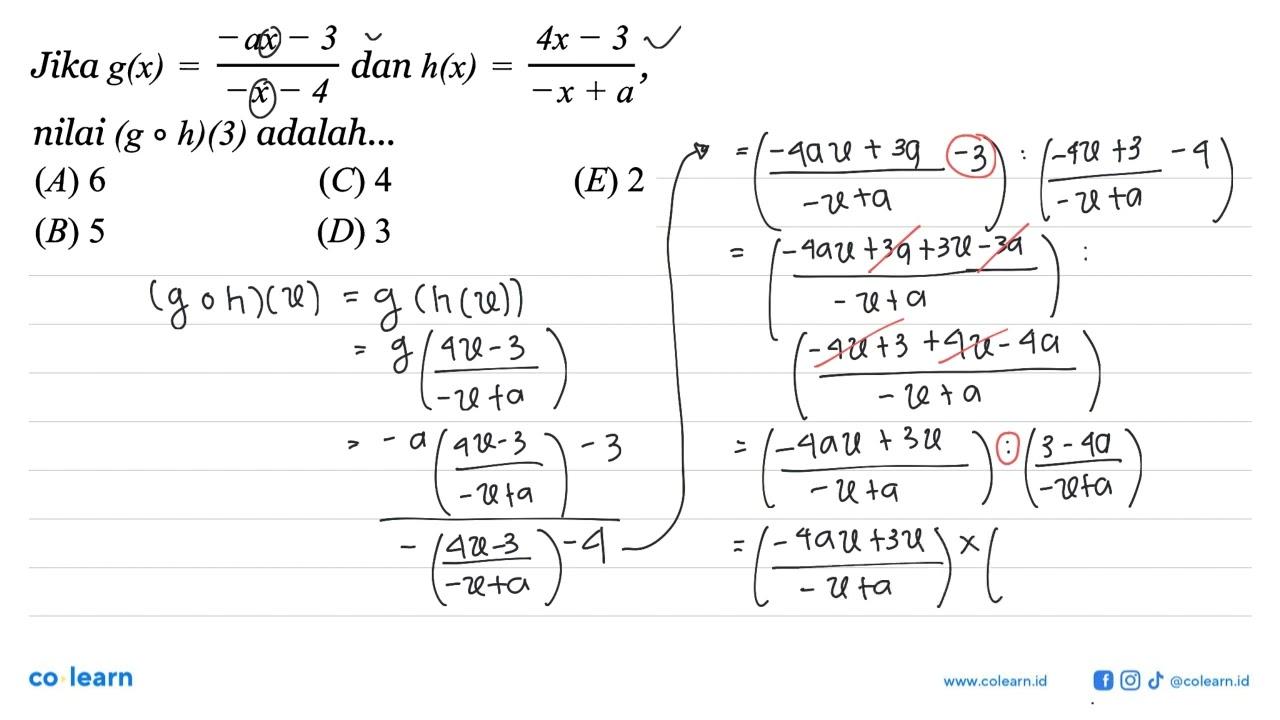 Jika g(x) = (-ax - 3)/(-x - 4) dan h(x) = (4x - 3)/(-x + a),
nilai (g ∘ h)(3) adalah...
(A) 6 (C) 4 (E) 2
(B) 5 (D) 3
(g ∘ h)(x) = g(h(x))
= g((4x-3)/(-x+a))
= (-a((4x-3)/(-x+a)) - 3)/(-((4x-3)/(-x+a)) - 4)
= ((-4ax + 3a)/(-x+a) - 3) : ((-4x + 3)/(-x+a) - 4)
= ((-4ax + 3a + 3x - 3a)/(-x+a)) :
((-4x + 3 + 4x - 4a)/(-x+a))
= ((-4ax + 3x)/(-x+a)) : ((3 - 4a)/(-x+a))
= ((-4ax + 3x)/(-x+a)) × (
co learn
www.colearn.id
@colearn.id